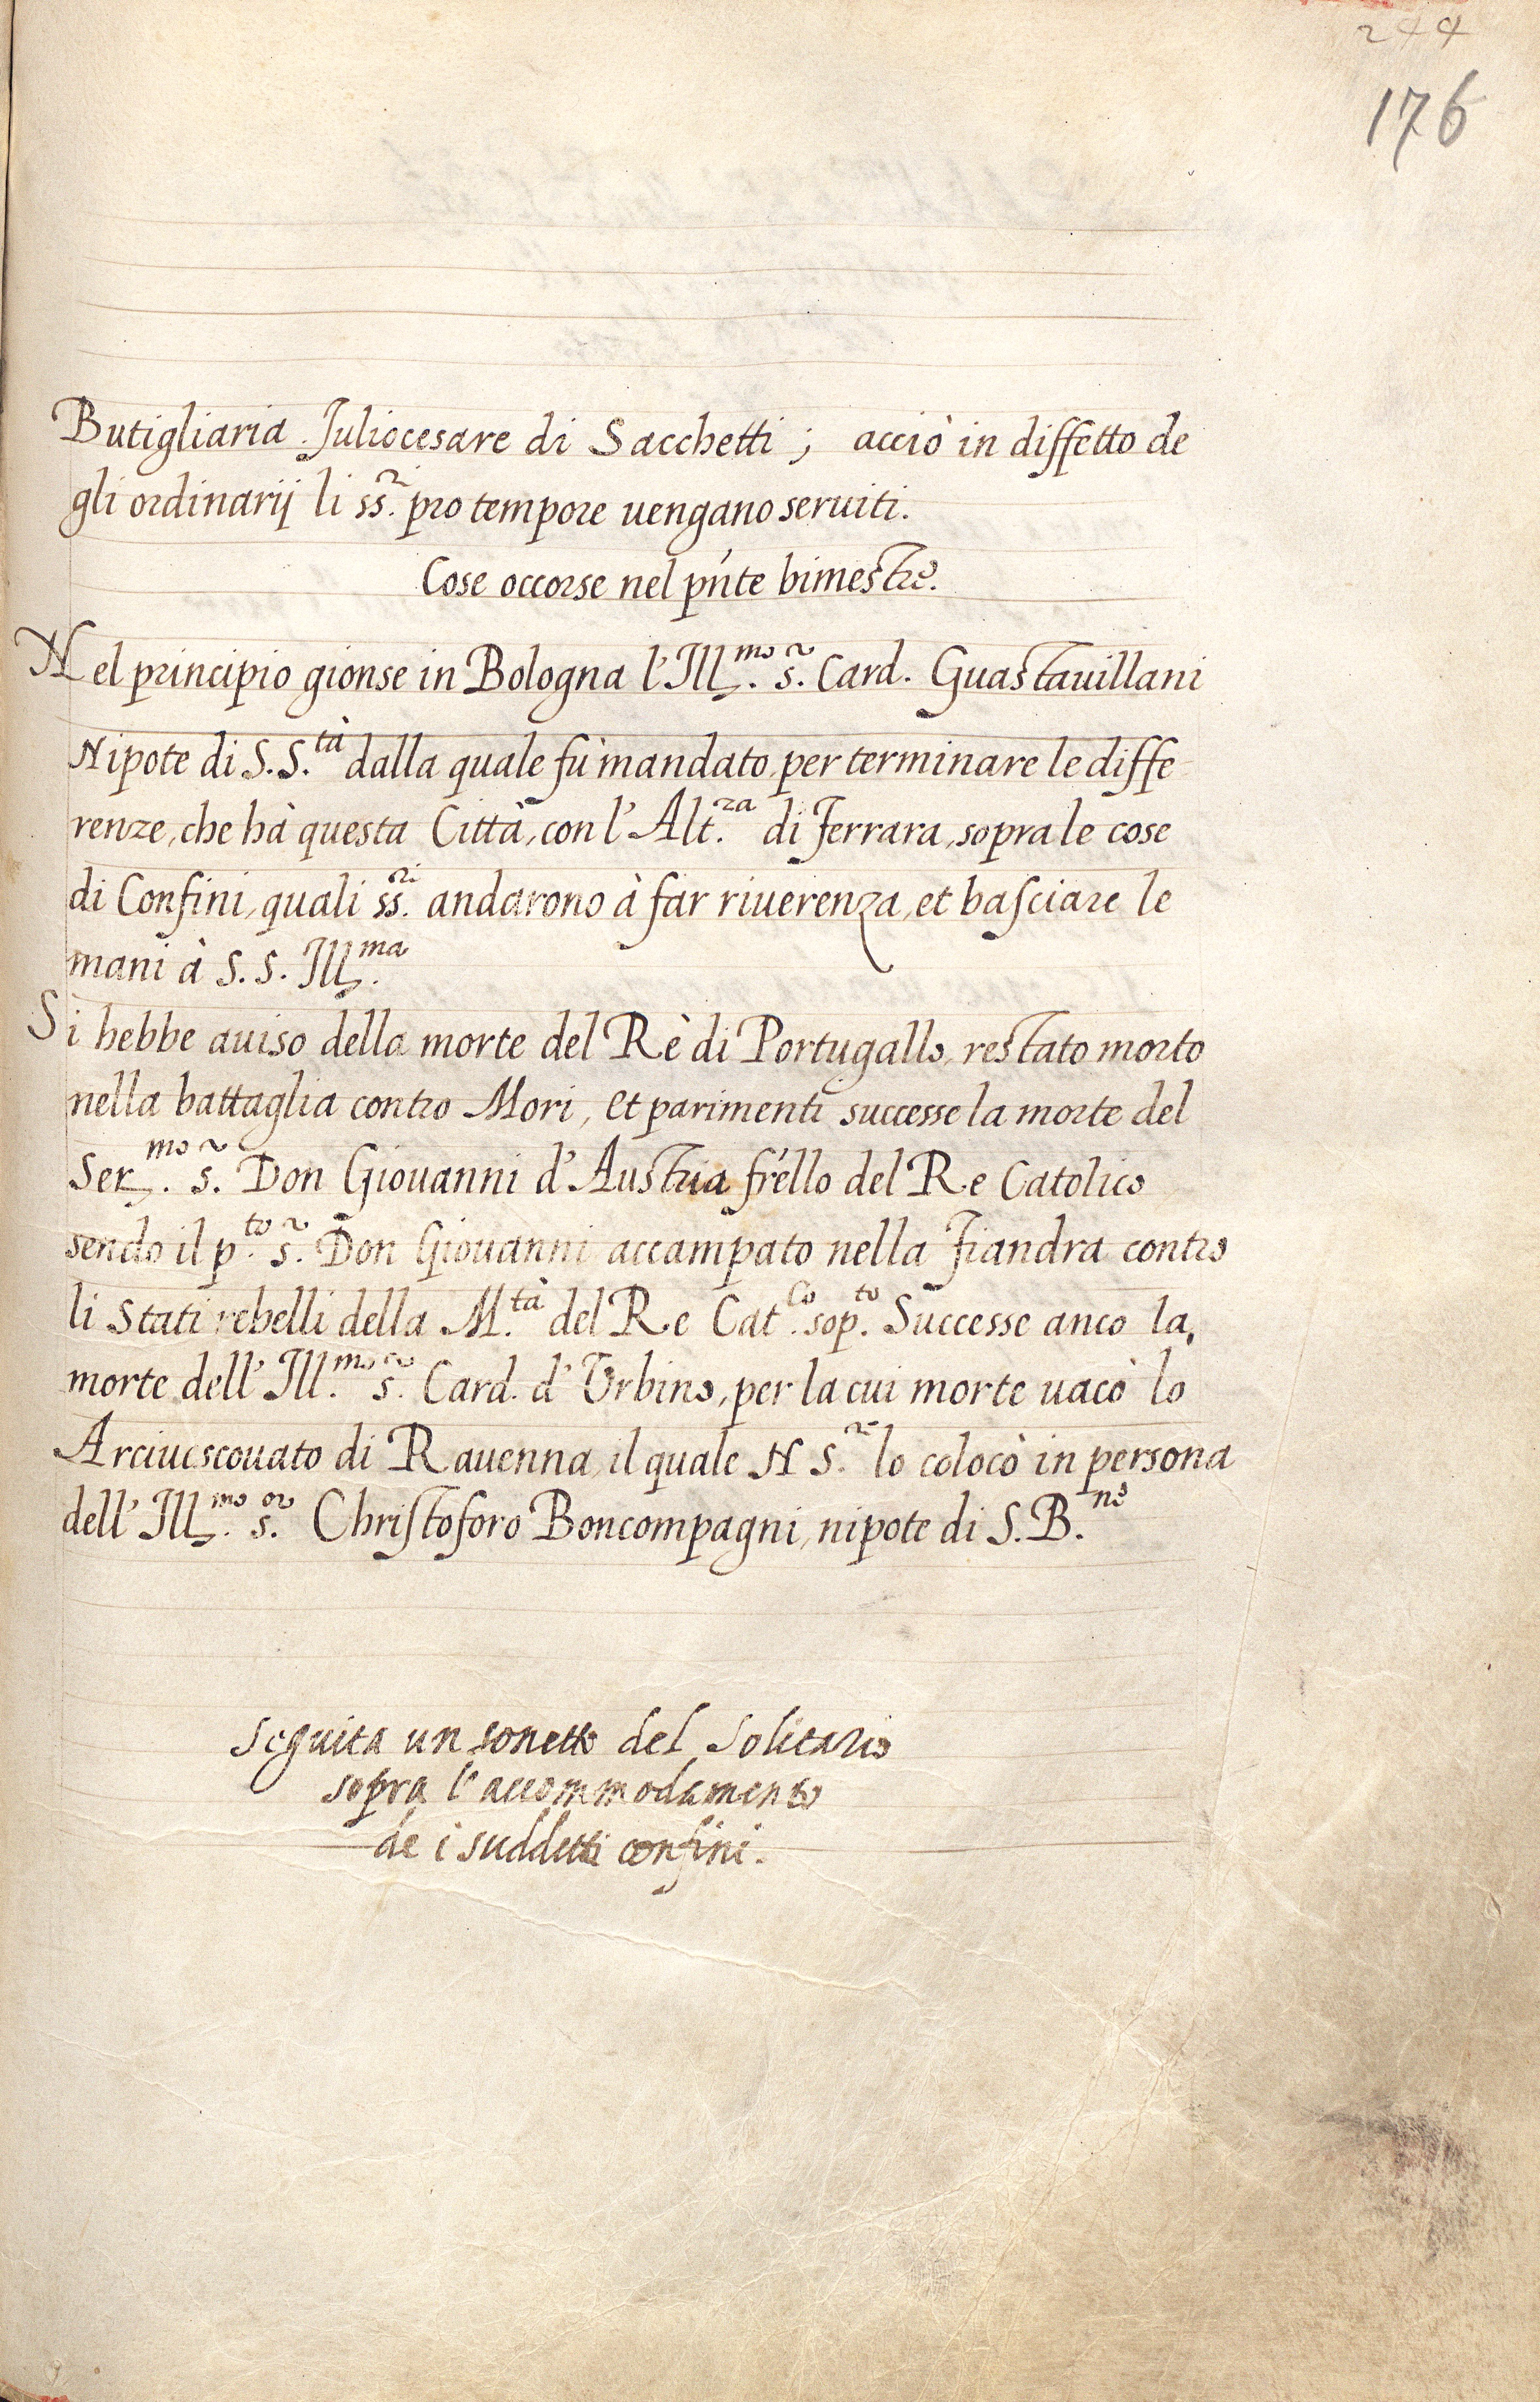 244
176
Butigliaria Juliocesare di Sacchetti; acciò in diffetto de
gli ordinarij li ss.ri pro tempore uengano seruiti.
Cose occorse nel pn̄te bimestre.
Nel principio gionse in Bologna l'Ill.mo s.r Card. Guastauillani
Nipote di S. S.tà dalla quale fù mandato, per terminare le diffe
renze, che hà questa Città, con l'Alt.za di Ferrara, sopra le cose
di Confini, quali ss.ri andarono à far riuerenza, et basciare le
mani à S. S. Ill.ma
Si hebbe auiso della morte del Rè di Portugallo, restato morto
nella battaglia contro Mori, et parimenti successe la morte del
Ser.mo s.r Don Giouanni d'Austria fr̄ello del Re Catolico
sendo il p.to s.r Don Giouanni accampato nella Fiandra contro
li Stati rebelli della M.tà del Re Cat.co sop.to Successe anco la,
morte dell'Ill.mo s.r Card. d'Vrbino, per la cui morte uacò lo
Arciuescouato di Rauenna, il quale N S.re lo colocò in persona
dell'Ill.mo s.or Christoforo Boncompagni, nipote di S. B.ne
Seguita un sonetto del Solitario
sopra l'accommodamento
de i suddetti confini.